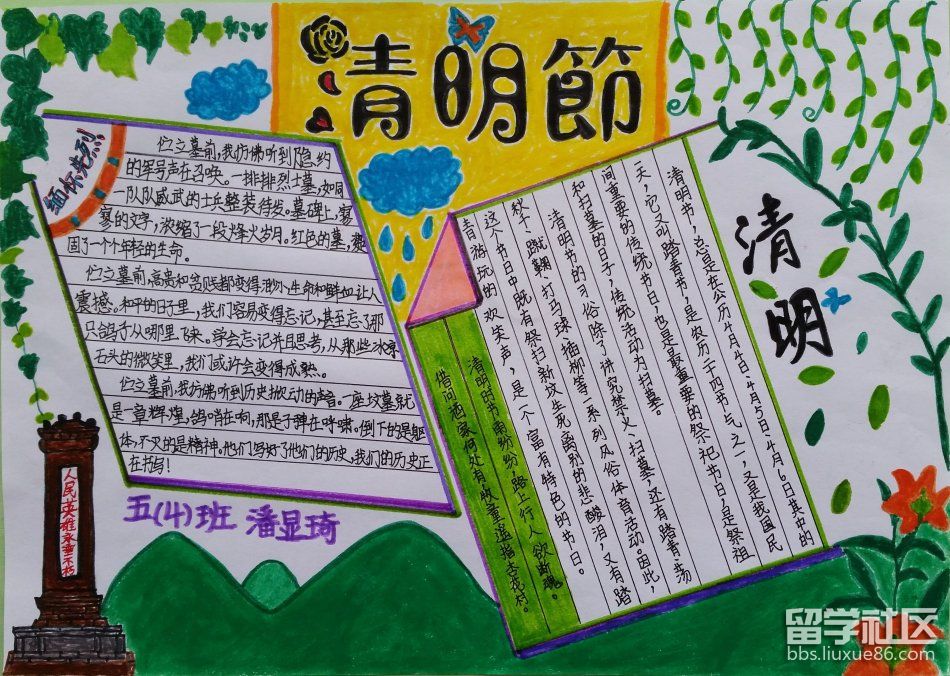 清明節
缅怀先烈
伫立墓前,我仿佛听到隐约
的军号声在召唤。一排排烈士墓,如同
一队队威武的士兵整装待发。墓碑上,寥
寥的文字,浓缩了一段烽火岁月。红色的墓,凝
固了一个个年轻的生命。
伫立墓前,高贵和贫贱都变得渺小,生命和鲜血让人
震撼。和平的日子里,我们容易变得忘记,甚至忘了那
只鸽子从哪里飞来。学会忘记并且思考,从那些冰冷
石头的微笑里,我们或许会变得成熟。
伫立墓前,我仿佛听到历史掀动的声音。一座坟墓就
是一章辉煌,鸽哨在响,那是子弹在呼啸。倒下的是躯
体,不灭的是精神。他们写好了他们的历史,我们的历史正
在书写!
清明
清明节,总是在公历4月4日、4月5日、4月6日其中的
一天,它又叫踏青节,是农历二十四节气之一,又是我国民
间重要的传统节日,也是最重要的祭祀节日,是祭祖
和扫墓的日子,传统活动为扫墓。
清明节的习俗除了讲究禁火、扫墓,还有踏青、荡
秋千、蹴鞠、打马球、插柳等一系列风俗体育活动。因此,
这个节日中既有祭扫新坟生死离别的悲酸泪,又有踏
青游玩的欢笑声,是一个富有特色的节日。
清明时节雨纷纷,路上行人欲断魂。
借问酒家何处有,牧童遥指杏花村。
五(4)班 潘显琦
人民英雄永垂不朽
留学社区
bbs.liuxue86.com